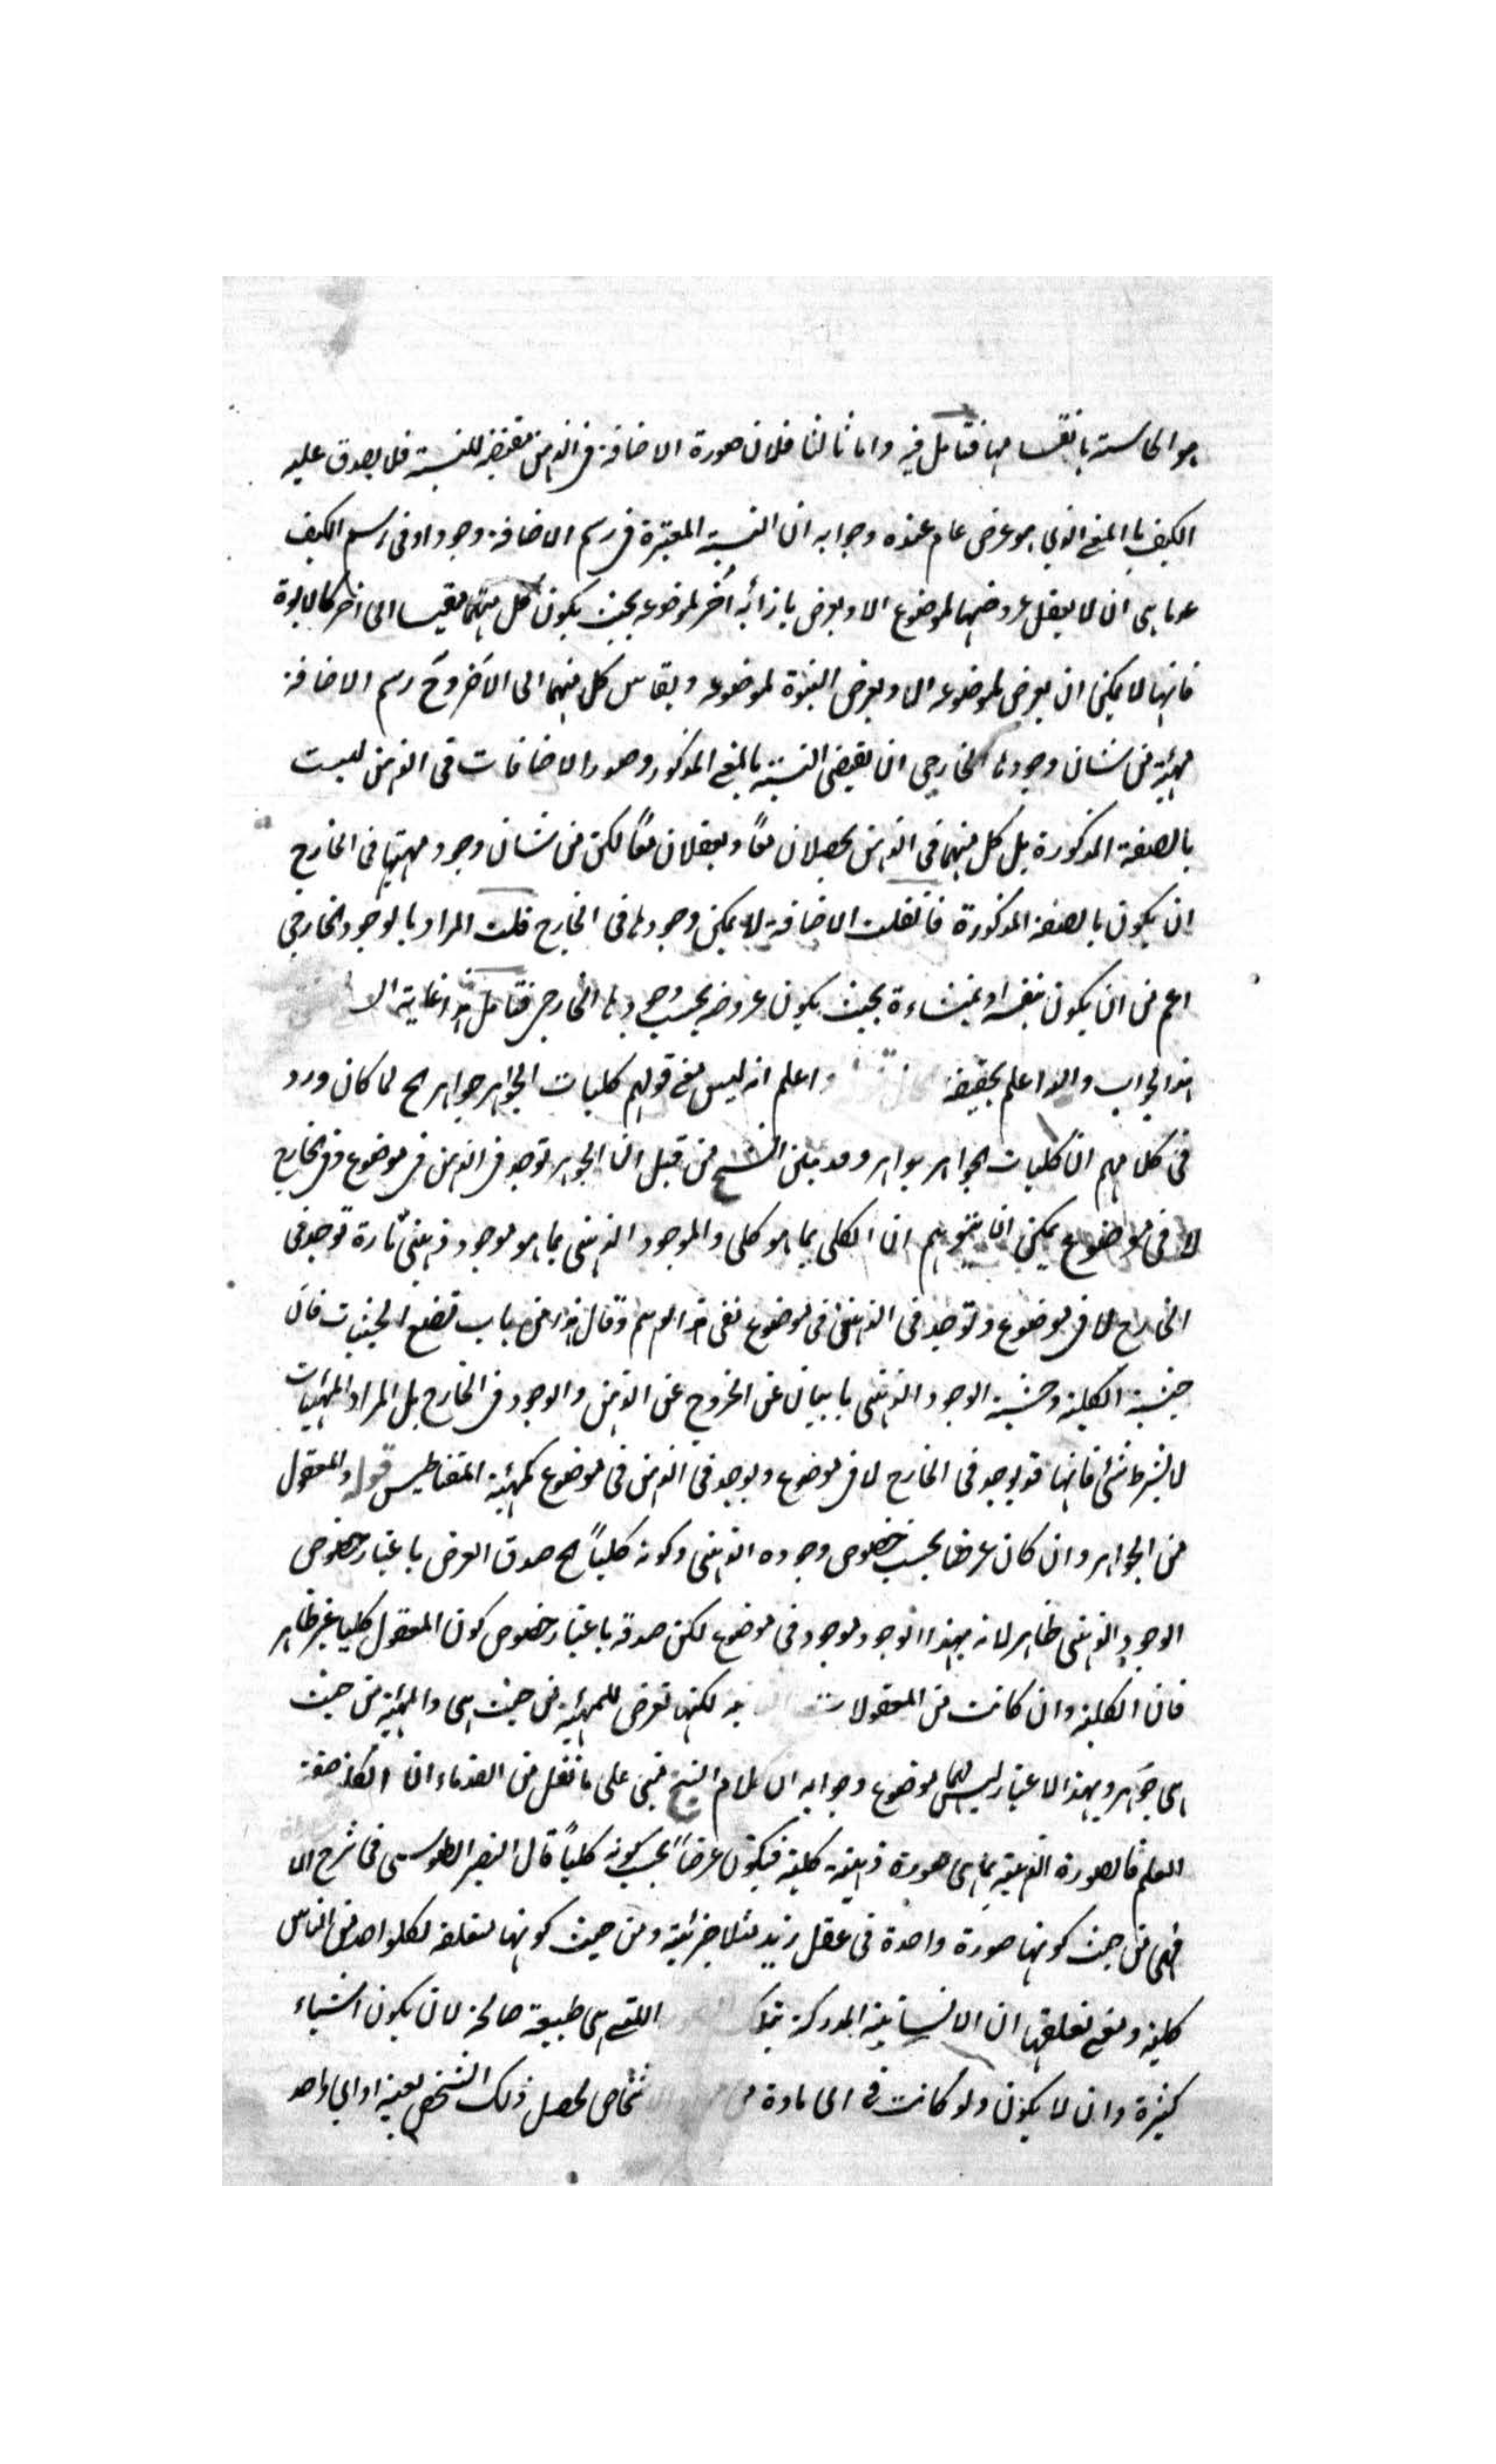 هو الحاسة بانقسامها فتامل فيه واما ثالثا فلان صورة الاضافة في الذهن مقتضية للنسبة فلا يصدق عليه
الكيف بالمعنى الذي هو عرض عام عنده وجوابه ان النسبة المعتبرة في رسم الاضافة وجودا وفي رسم الكيف
عدما هي ان لا يعقل عروضها لموضوع الا ويعرض بازائه آخر لموضوعه بحيث يكون كل منهما يقيسا الى آخر كالابوة
فانها لا يمكن ان يعرض لموضوعه الا ويعرض البنوة لموضوعه ويقاس كل منهما الى الآخر وح رسم الاضافة
مهية من شان وجودها الخارجي ان يقتضي النسبة بالمعنى المذكور وصور الاضافات في الذهن ليست
بالصفة المذكورة بل كل منهما في الذهن يحصلان معًا ويعقلان معًا لكن من شان وجود مهيتها في الخارج
ان يكون بالصفة المذكورة فان قلت الاضافة لا يمكن وجودها في الخارج قلت المراد بالوجود الخارجي
اعم من ان يكون بنفسه او بمنشاءه بحيث يكون عروضه بحسب وجودها الخارجي فتامل هذا غاية
هذا الجواب والله اعلم بحقيقة واعلم انه ليس معنى قولهم كليات الجواهر جواهر اه لما كان ورد
في كلامهم ان كليات الجواهر جواهر وقد بين الشيخ من قبل ان الجوهر توجد في الذهن في موضوع وفي الخارج
لا في موضوع يمكن ان يتوهم ان الكلي بما هو كلي والموجود الذهني بما هو موجود ذهني تارة توجد في
الخارج لا في موضوع وتوجد في الذهن في موضوع نفى هذا الوهم وقال هذا من باب تضييع الحيثيات فان
حيثية الكلية وحيثية الوجود الذهني يابيان عن الخروج عن الذهن والوجود في الخارج بل المراد المهيات
لا بشرط شئ فانها قد يوجد في الخارج لا في موضوع ويوجد في الذهن في موضوع كمهية المقناطيس قوله والمعقول
من الجواهر وان كان عرضا بحسب خصوص وجوده الذهني وكونه كلياً اه صدق العرض باعتبار خصوص
الوجود الذهني ظاهر لانه بهذا الوجود موجود في موضوع لكن صدقه باعتبار خصوص كون المعقول كليا غير ظاهر
فان الكلية وان كانت من المعقولات لكنها تعرض للمهية من حيث هي والمهية من حيث
هي جوهر وبهذا الاعتبار ليس لها موضوع وجوابه ان كلام الشيخ مبني على ما نقل من القدماء ان الكلية صفة
العلم فالصورة الذهنية بما هي صورة ذهنية كلية فيكون عرضاً بحسب كونه كلياً قال النصير الطوسي في شرح
فهي من حيث كونها صورة واحدة في عقل زيد مثلا جزئية ومن حيث كونها متعلقة لكل واحد من الناس
كلية ومعنى تعلقها ان الانسانية المدركة بتلك التي هي طبيعة صالحة لان يكون اشياء
كثيرة وان لا يكون ولو كانت في اي مادة من الاشخاص لحصل ذلك الشخص بعينه او اي واحد